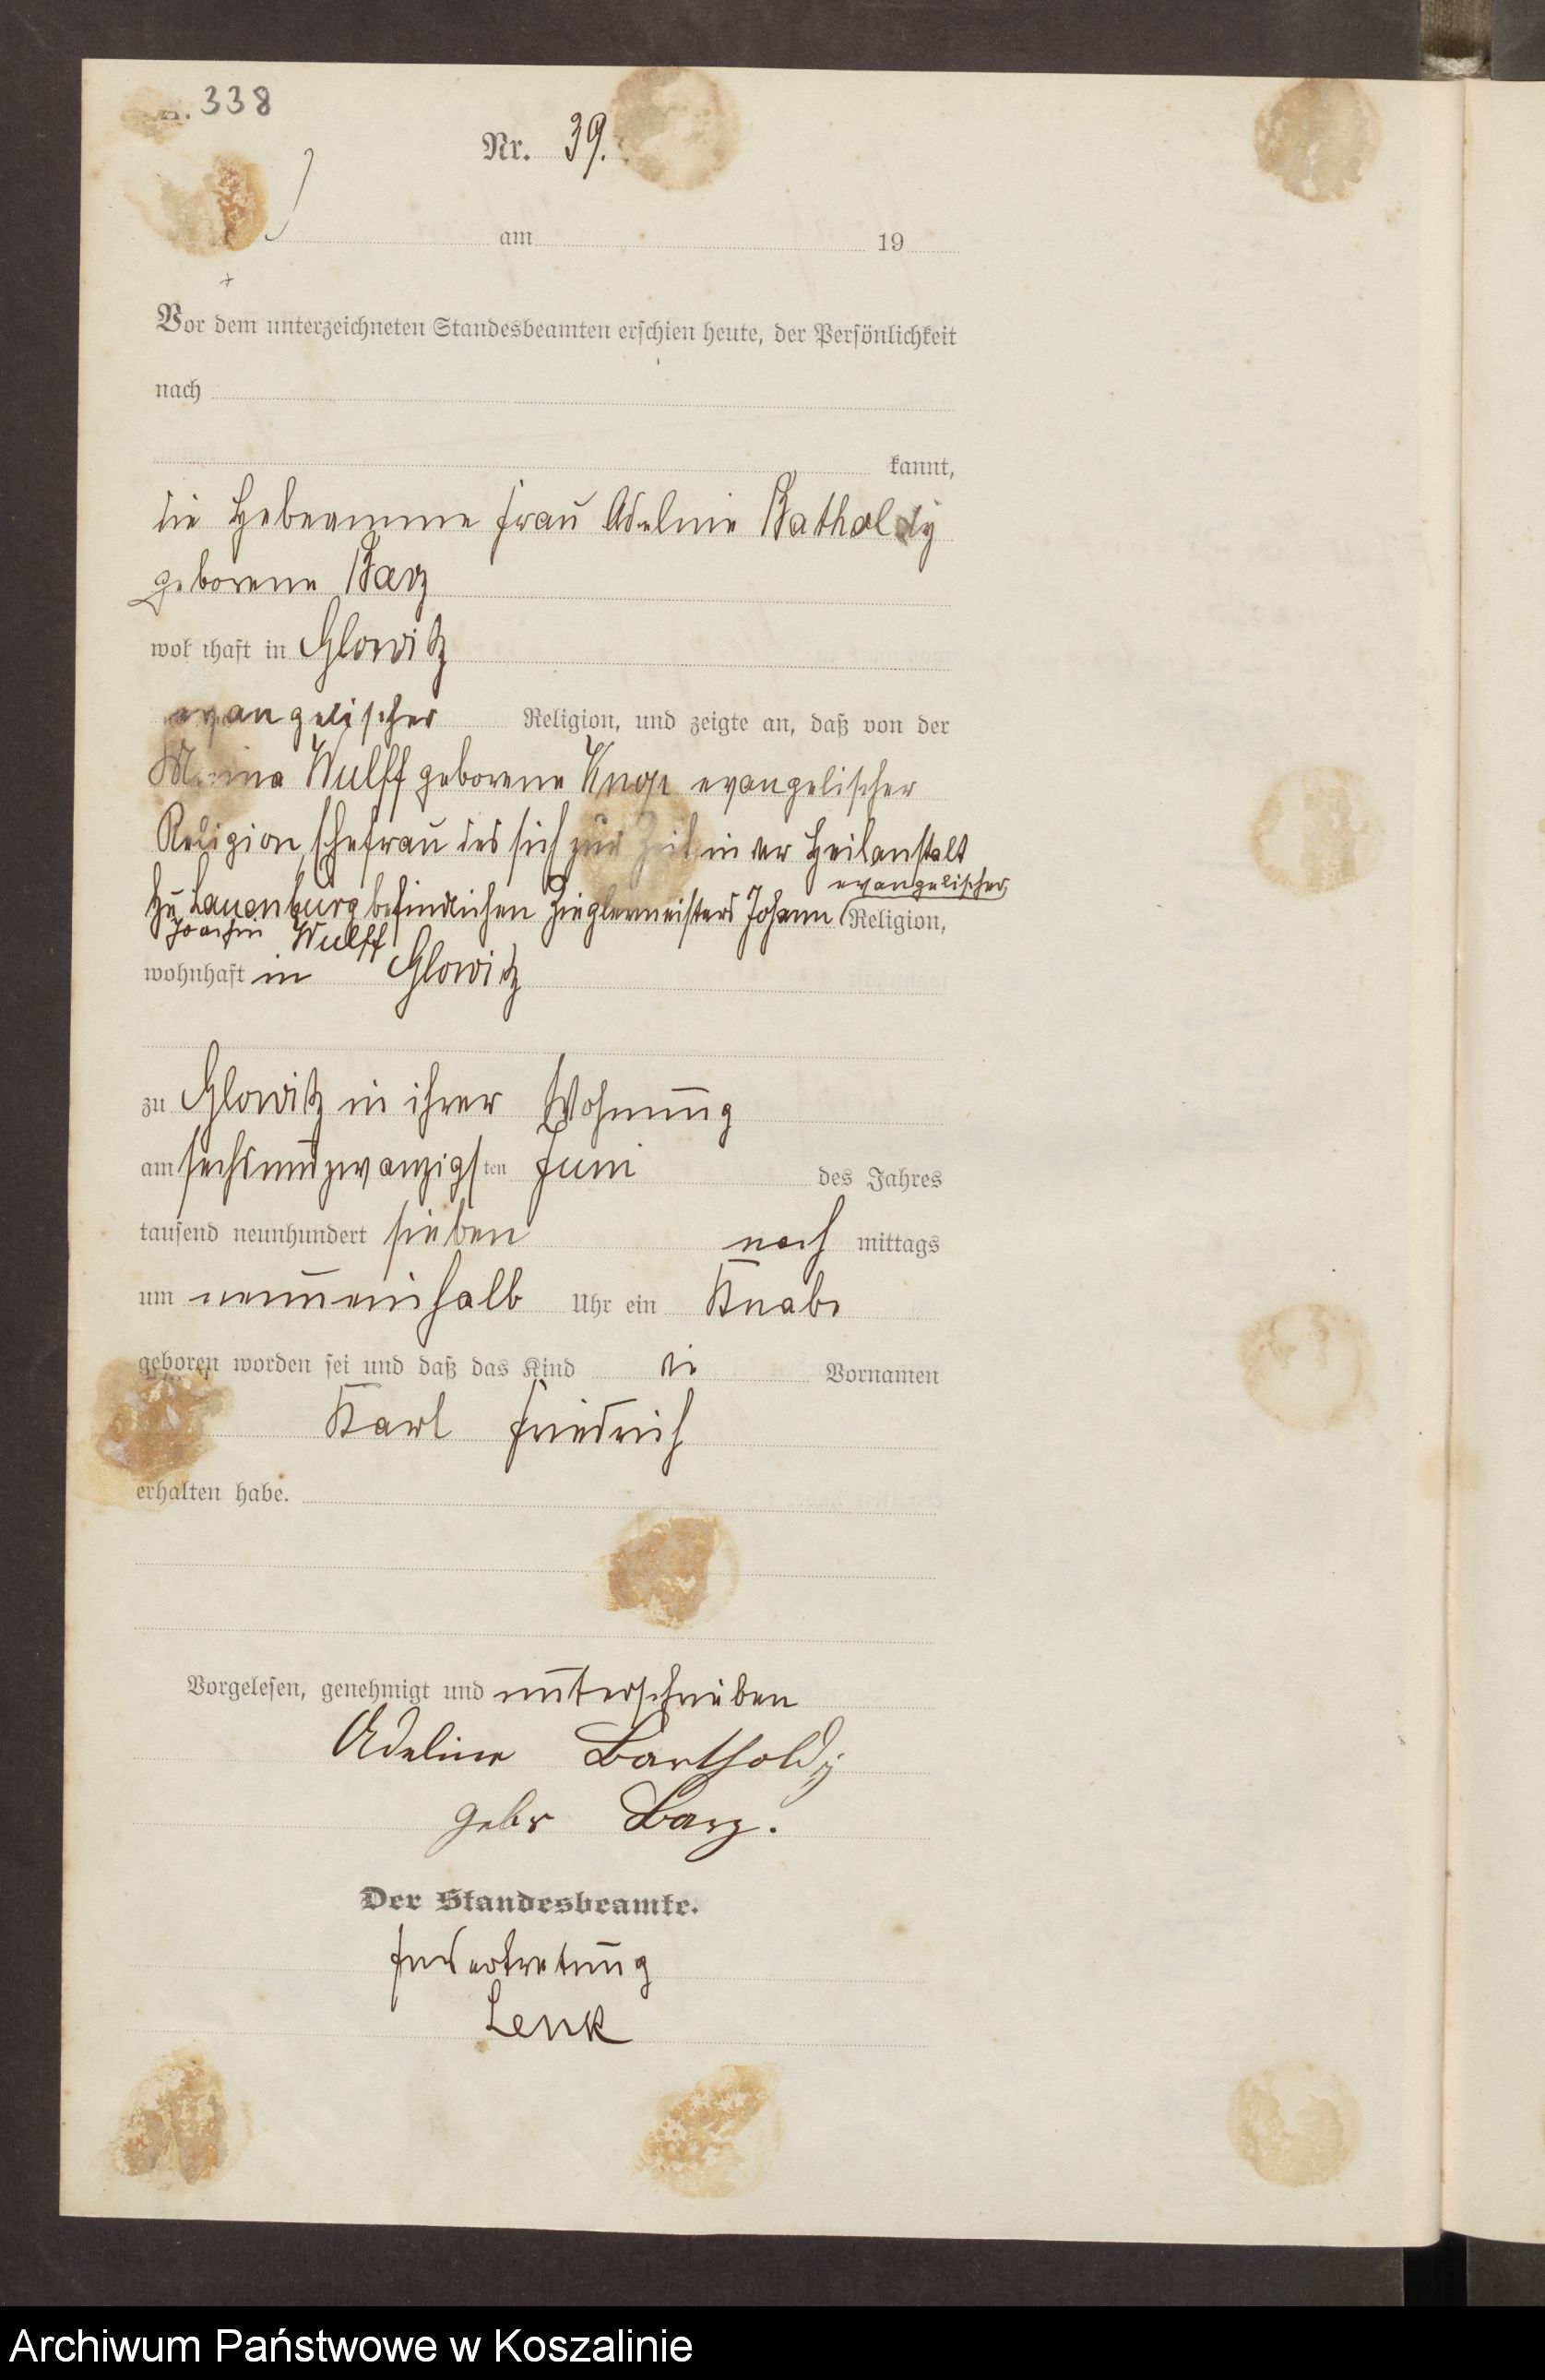 338
Nr. 39.
am 19
Vor dem unterzeichneten Standesbeamten erschien heute, der Persönlichkeit
nach
kannt,
die Hebeamme Frau Adeline Batholdy
geborene Barz
wohnhaft in Glowitz
evangelischer Religion, und zeigte an, daß von der
Minna Wulff geborene Knop evangelischer
Religion, Ehefrau des sich zur Zeit in der Heilanstalt
evangelischer
zu Lauenburg befindlichen Zieglermeisters Johann Religion,
Joachim Wulff
wohnhaft in Glowitz
zu Glowitz in ihrer Wohnung
am sechsundzwanzigsten Juni des Jahres
tausend neunhundert sieben nach mittags
um neuneinhalb Uhr ein Knabe
geboren worden sei und daß das Kind die Vornamen
Karl Friedrich
erhalten habe.
Vorgelesen, genehmigt und unterschrieben
Adeline Bartholdy
gebr Barz.
Der Standesbeamte.
In Vertretung
Lenk
Archiwum Państwowe w Koszalinie